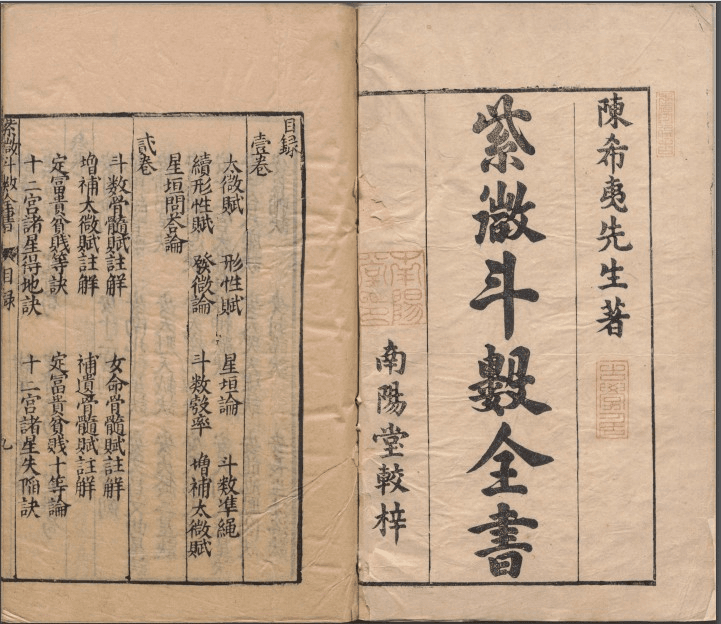 陳希夷先生著
紫微斗數全書
南陽堂較梓
目錄
壹卷
太微賦 形性賦 星垣論 斗数準繩
續形性賦 發微論 斗数彀率 增補太微賦
星垣問答論
貳卷
斗数骨髓賦註解 女命骨髓賦註解
增補太微賦註解 補遺骨髓賦註解
定富貴貧賤等訣 定富貴貧贱十等論
十二宮諸星得地訣 十二宮諸星失陷訣
紫微斗数全書 目錄 九